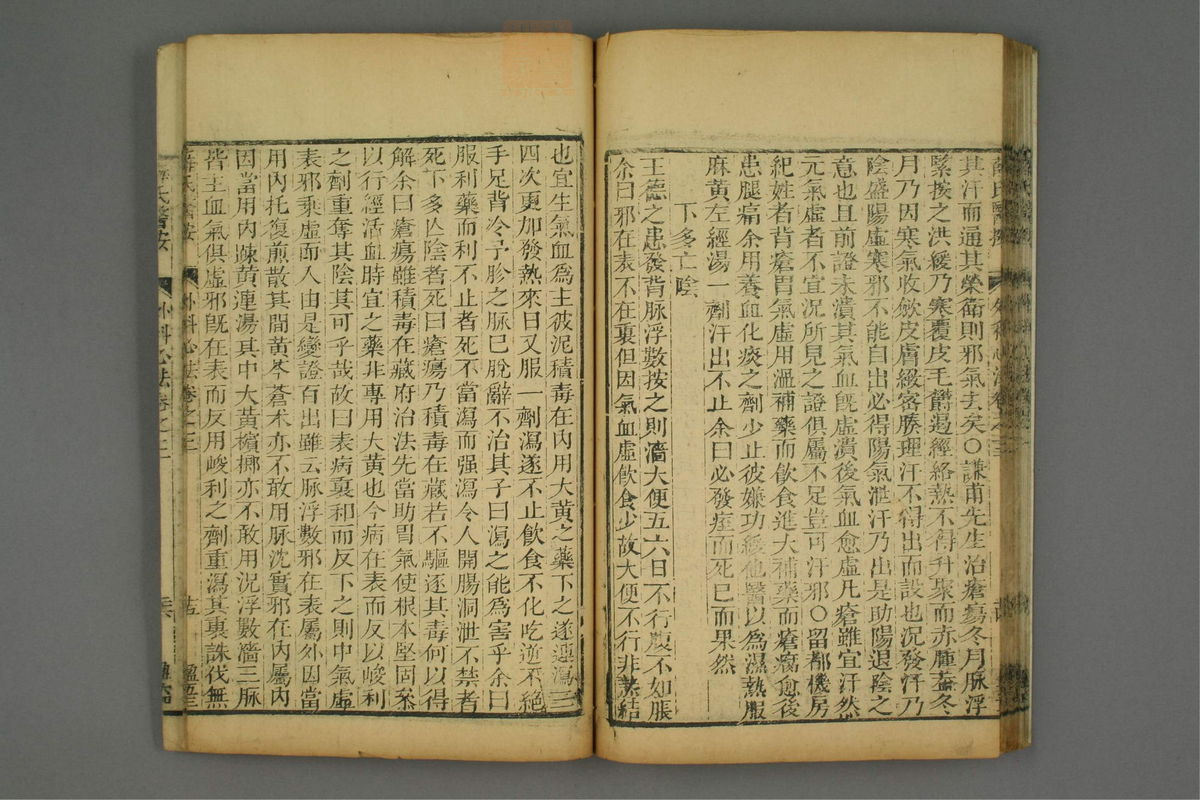 其汗而通其榮衛則邪氣去矣○謙甫先生治瘡瘍冬月脉浮
緊按之洪緩乃寒覆皮毛欝遏經絡熱不得升聚而赤腫蓋冬
月乃因寒氣收歛皮膚緻密腠理汗不得出而設也況發汗乃
陰盛陽虛寒邪不能自出必得陽氣泄汗乃出是助陽退陰之
意也且前證未潰其氣血旣虛潰後氣血愈虛凡瘡雖宜汗然
元氣虛者不宜況所見之證俱屬不足豈可汗邪○留都機房
紀姓者背瘡胃氣虛用溫補藥而飲食進大補藥而瘡腐愈後
患腿痛余用養血化痰之劑少止彼嫌功緩他醫以爲濕熱服
麻黃左經湯一劑汗出不止余曰必發痓而死已而果然
下多亡陰
王德之患發背脉浮數按之則濇大便五六日不行腹不如脹
余曰邪在表不在裏但因氣血虛飲食少故大便不行非熱結
也宜生氣血爲主彼泥積毒在內用大黃之藥下之遂連瀉三
四次更加發熱來日又服一劑瀉遂不止飲食不化吃逆不絕
手足背冷予胗之脉已脫辭不治其子曰瀉之能爲害乎余曰
服利藥而利不止者死不當瀉而强瀉令人開腸洞泄不禁者
死下多亾陰者死曰瘡瘍乃積毒在藏若不驅逐其毒何以得
解余曰瘡瘍雖積毒在藏府治法先當助胃氣使根本堅固叅
以行經活血時宜之藥非專用大黃也今病在表而反以峻利
之劑重奪其陰其可乎哉故曰表病裏和而反下之則中氣虛
表邪乘虛而入由是變證百出雖云脉浮數邪在表屬外因當
用內托復煎散其間黃芩蒼朮亦不敢用脉沈實邪在內屬內
因當用內踈黃連湯其中大黃檳榔亦不敢用況浮數濇三脉
皆主血氣俱虛邪旣在表而反用峻利之劑重瀉其裏誅伐無
薛氏醫按 外科心法卷之三